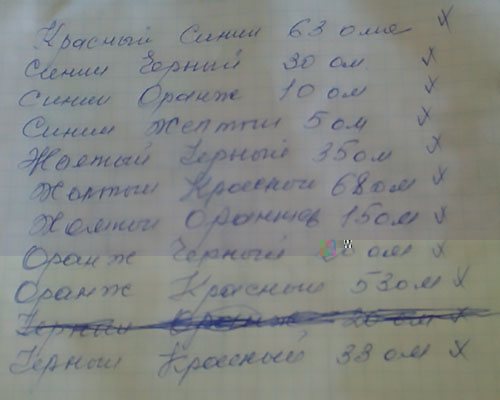 Красный Синий 63 ома х
Синий Черный 30 ом х
Синий Оранж 10 ом х
Синий Желтый 5 ом х
Желтый Черный 35 ом х
Желтый Красный 68 ом х
Желтый Оранжев 15 ом х
Оранж Черный 20 ом х
Оранж Красный 53 ом х
Черный Оранж 20 ом х
Черный Красный 33 ом х